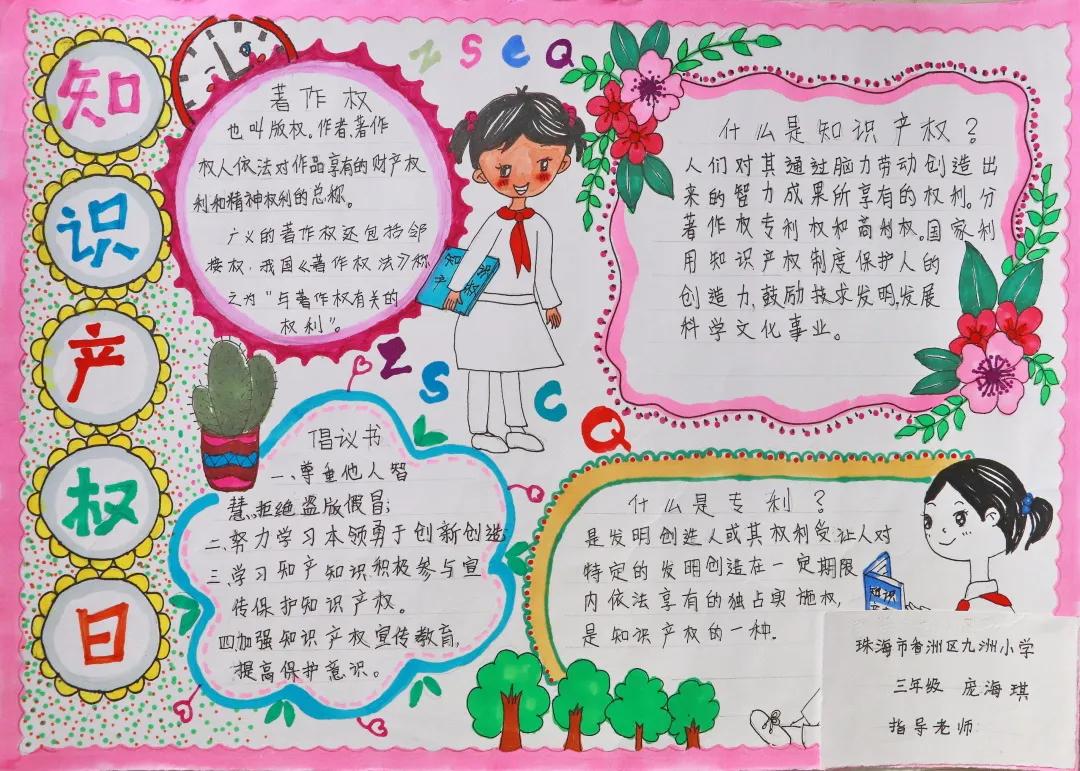 知
识
产
权
日
Z S C Q
著作权
也叫版权。作者、著作
权人依法对作品享有的财产权
利和精神权利的总称。
广义的著作权还包括邻
接权，我国《著作权法》称
之为“与著作权有关的
权利”。
知识
产权
什么是知识产权？
人们对其通过脑力劳动创造出
来的智力成果所享有的权利。分
著作权专利权和商州权。国家利
用知识产权制度保护人的
创造力，鼓励技术发明，发展
科学文化事业。
Z S C Q
倡议书
一、尊重他人智
慧，拒绝盗版假冒；
二、努力学习本领勇于创新创造
三、学习知产知识，积极参与宣
传保护知识产权。
四加强知识产权宣传教育，
提高保护意识。
什么是专利？
是发明创造人或其权利受让人对
特定的发明创造在一定期限
内依法享有的独占实施权，
是知识产权的一种。
知识
珠海市香洲区九洲小学
三年级 庞海琪
指导老师